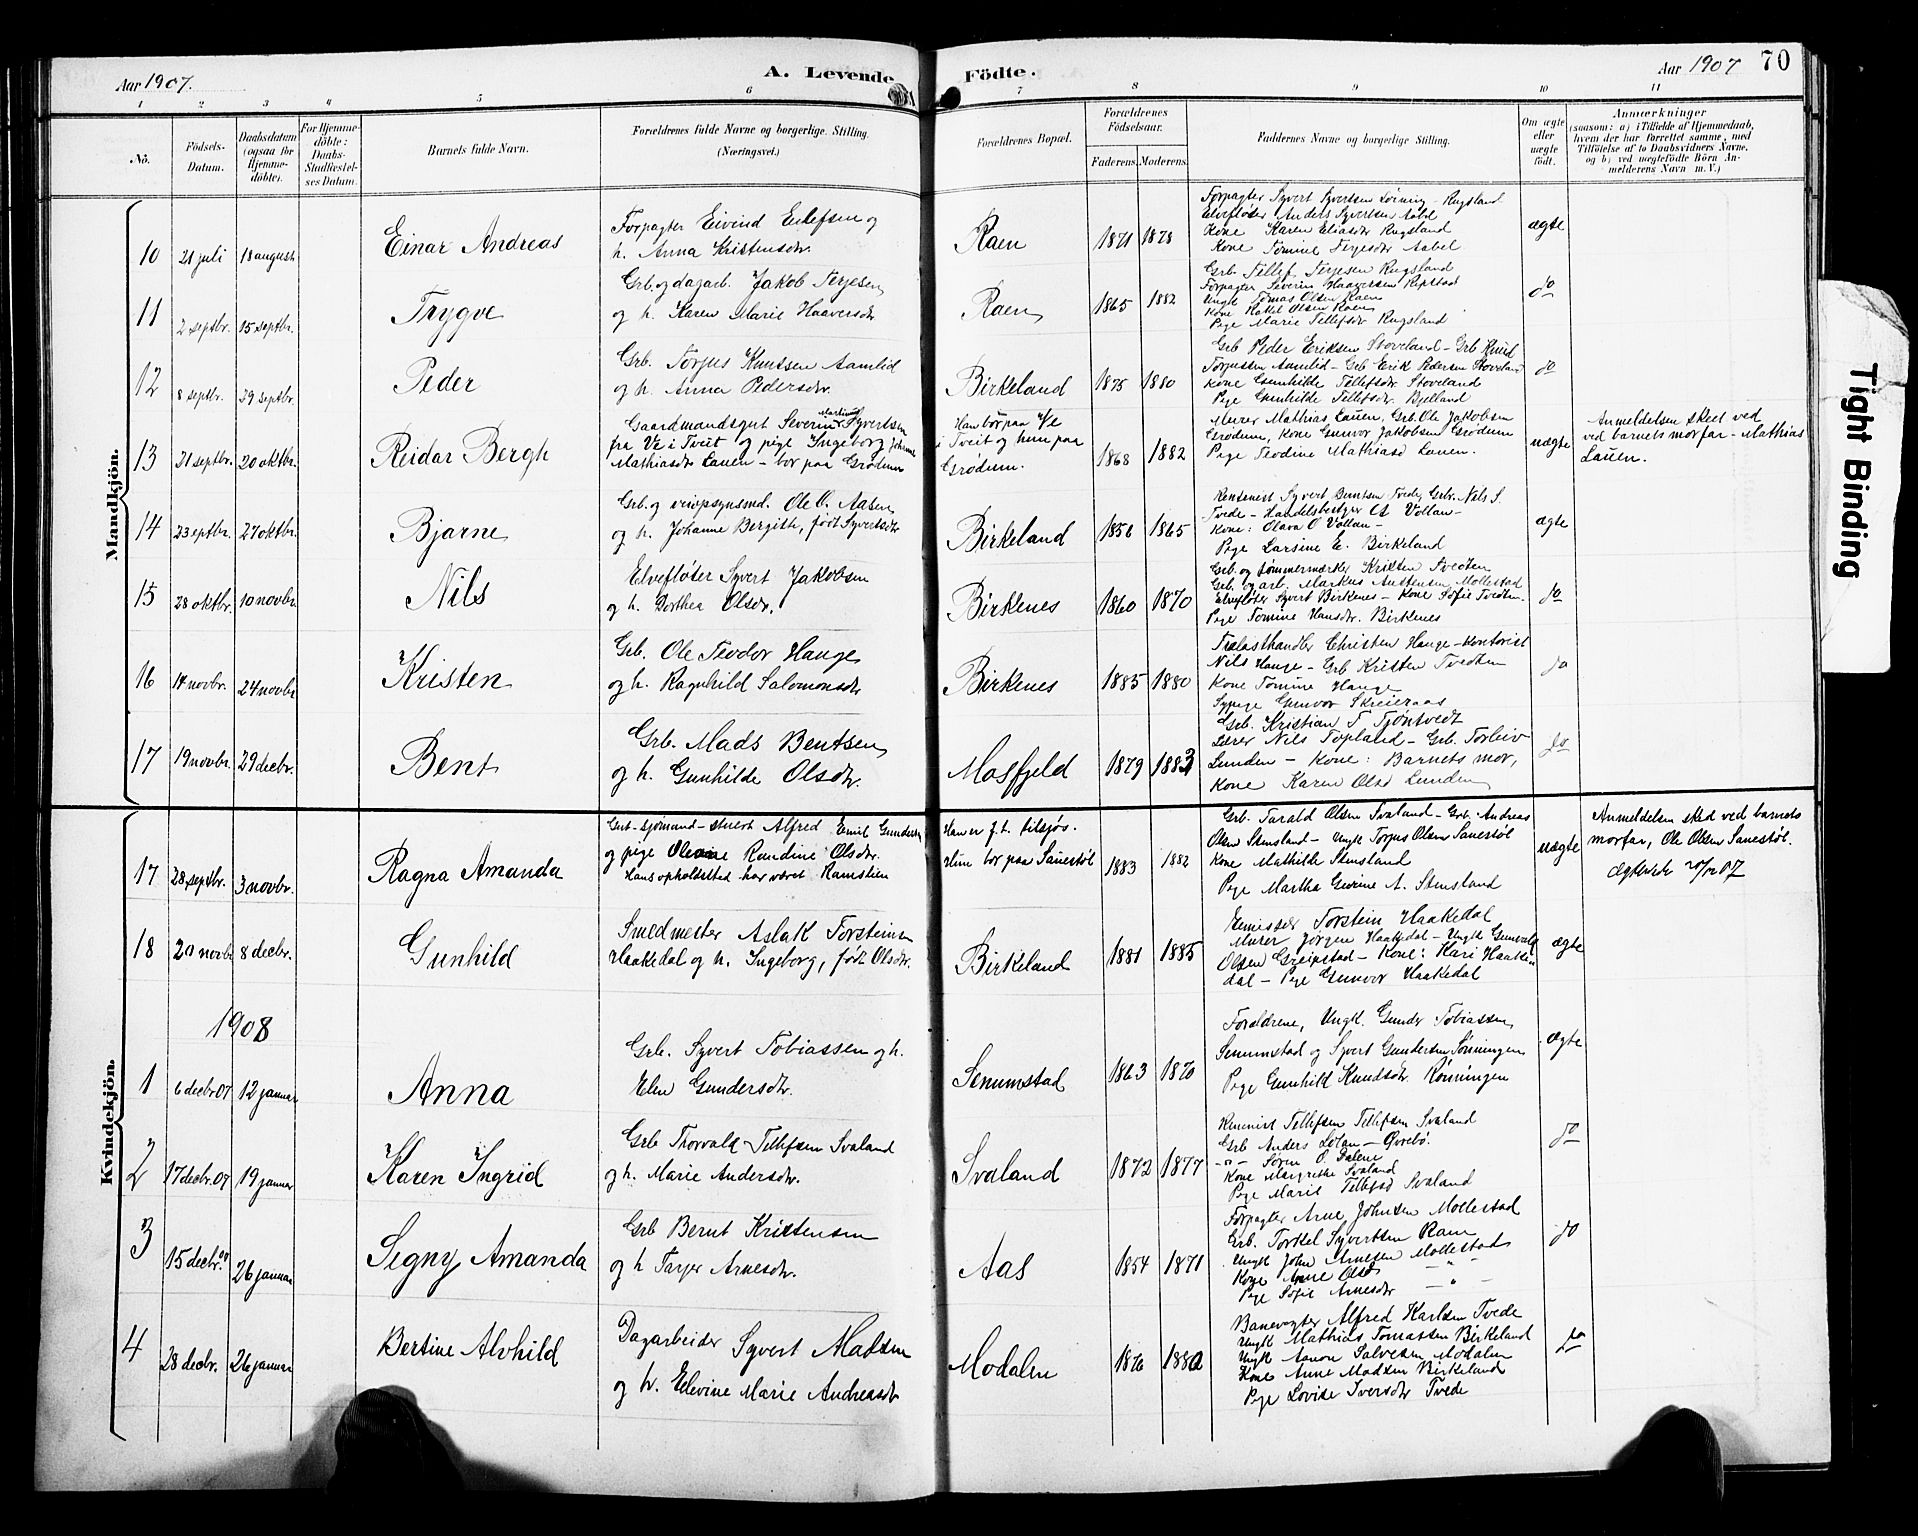 Aar 1907.
A. Levende Födte.
Aar 1907 70
1 2 3 4 5 6 7 8 9 10 11
No.
Födsels-Datum.
Daabsdatum (ogsaa for Hjemme-döbte).
For Hjemme-döbte: Daabs-Stadfæstel-ses Datum.
Barnets fulde Navn.
Forældrenes fulde Navne og borgerlige Stilling.
(Næringsvei.)
Forældrenes Bopæl.
Forældrenes Födselsaar.
Faderens. Moderens.
Faddernes Navne og borgerlige Stilling.
Om ægte eller uægte födt.
Anmærkninger
(saasom: a) i Tilfælde af Hjemmedaab,
hvem der har forrettet samme, med
Tilföielse af to Daabsvidners Navne,
og b) ved uægtefödte Börn An-
melderens Navn m. V.)
Mandkjön.
10 21 juli 18 august Einar Andreas
Forpagter Eivind Eilefsen og
h. Anna Kristensdtr.
Raen 1871 1878
Forpagter Syvert Syvertsen Lønning - Rugsland
Elvefløter Anders Syvertsen Aabel
Kone Karen Eliasdtr Rugsland
Kone Tomine Terjesdtr Aabel
ægte
11 2 septbr. 15 septbr. Trygve
Grb. og dagarb. Jakob Terjesen
og h. Karen Marie Haaversdtr
Raen 1865 1882
Grb. Tellef Terjesen Rugsland
Forpagter Severin Haaversen Repstad
Ungk Tomas Olsen Raen
Kone Kattel Olsen Raen
Pige Marie Tellefsdtr Rugsland
do
12 8 septbr. 29 septbr. Peder
Grb. Torjus Knutsen Aamlid
og h. Anna Pedersdtr.
Birkeland 1875 1880
Grb Peder Eriksen Stoveland - Grb Knud
Torjussen Aamlid - Grb Erik Pedersen Stoveland
Kone Gunhilde Tellefsdtr Stoveland
Pige Gunhilde Tellefsdtr. Bjelland
do
13 21 septbr. 20 oktbr. Reidar Bergh
Gaardmandsgut Severin Martin Syvertsen
fra Ve i Tveit og pige Ingeborg Johanne
Mathiasdtr Lauen - bor paa Grødum
Han bor paa Ve
i Tveit og hun paa
Grødum.
1868 1882
Murer Mathias Lauen, Grb. Ole Jakobsen
Grødum, Kone Gunvor Jakobsen Grødum
Pige Teodine Mathiasd Lauen.
uægte
Anmeldelsen skeet ved
ved barnets morfar - Mathias
Lauen.
14 23 septbr. 27 oktbr. Bjarne
Grb. og veiopsynsmd. Ole O. Aasen
og h. Johanne Bergith, født Syvertsdtr
Birkeland 1856 1865
Rentenist Syvert Guntsen Tvede, Grb. Nils S.
Tvede - Handelsbestyer O Vollan -
Kone: Olava O Vollan -
Pige Larsine E. Birkeland
ægte
15 28 oktbr. 10 novbr. Nils
Elvefløter Syvert Jakobsen
og h. Dorthea Olsdtr.
Birkenes 1860 1870
Grb. og tømmermærker Kristen Tvedten
Grb. og arb. Markus Austensen Mollestad
Elvefløter Syvert Birkenes - Kone Sofie Tvedten.
Pige Tomine Hansdtr. Birkenes
do
16 14 novbr. 24 novbr Kristen
Grb. Ole Teodor Hauge
og h. Ragnhild Salomonsdtr
Birkenes 1885 1880
Trælasthandler Christen Hauge - Kontorist
Nils Hauge - Grb Kristen Tvedten
Kone Tomine Hauge
Sypige Gunvor Skeieraas
do
17 19 novbr. 29 decbr. Bent
Grb. Mads Bentsen
og h. Gunhilde Olsdtr.
Mosfjeld 1879 1883
Grb. Kristian T. Tjøntvedt
Lærer Nils Topland - Grb. Torleiv
Lunden - Kone: Barnets mor,
Kone Karen Olsd Lunden
do
Kvindekjön.
17 28 septbr. 3 novbr. Ragna Amanda
Gut - sjømand - stuert Alfred Emil Gundersen
og pige Olevine Randine Olsdtr.
Hans opholdssted har været Ramslien
Han er f.t. tilsjøs.
bor paa Sauestøl
1883 1882
Grb. Tarald Olsen Svaland - Grb. Andreas
Olsen Stensland - Ungk Torjus Olsen Sauestøl
Kone Mathilde Stensland
Pige Martha Gurine A. Stensland
uægte
Anmeldelsen sked ved barnets
morfar, Ole Olsen Sauestøl.
18 20 novbr 8 decbr. Gunhild
Smedmester Aslak Torsteinsen
Haakedal og h. Ingeborg, født Olsdtr.
Birkeland 1881 1885
Emissær Torstein Haakedal
Murer Jørgen Haakedal - Ungk Gunvald
Olsen Greipstad - Kone: Kari Haake
dal - Pige Gunvor Haakedal
ægte
1908
1 6 decbr 07 12 januar Anna
Grb. Syvert Tobiassen og h.
Elen Gundersdtr.
Senumstad 1863 1870
Forældrene, Ungk. Gunder Tobiassen,
Senumstad og Syvert Gundersen Lønningen
Pige Gunhild Knudsdtr. Rønningen
ægte
2 17 decbr. 07 19 januar Karen Ingrid
Grb Thorvald Tellefsen Svaland
og h. Marie Andersdtr.
Svaland 1872 1877
Tellefsen Tellefsen Svaland
Grb Anders Lølan - Øvrebø.
-"- Søren O. Dalene
Kone Margrethe Svaland
Pige Marie Tellefsd Svaland
do
3 15 decbr. 07 26 januar Segny Amanda
Grb Bernt Kristensen
og h Tarjer Arnesdtr.
Aas 1854 1871
Forpagter Arne Johnsen Mollestad
Grb. Torkel Syvertsen Raen
Ungk John Arnesen Mollestad
Kone Anne Olsd - " -
Pige Sofie Arnesdtr - " -
do
4 28 decbr. 26 januar Bertine Alvhild
Dagarbeider Syvert Madsen
og h. Edevine Marie Andreasdtr
Modalen 1876 1880
Banevogter Alfred Karlsen Tvede
Ungk Mathias Tomassen Birkeland
Ungk Aanon Salvesen Modalen
Kone Anne Madsen Birkeland
Pige Lovise Iversdtr Tvede
do
Tight Binding